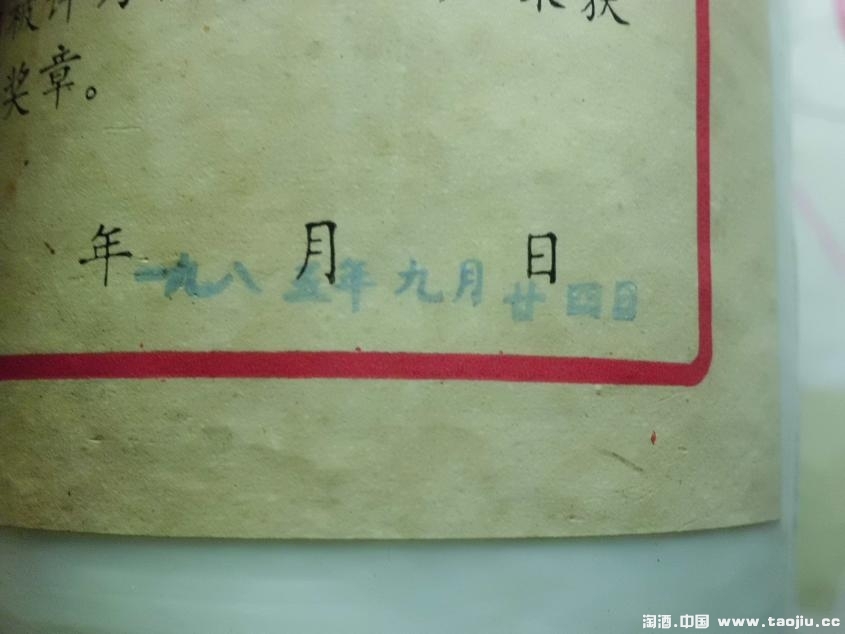 被评为 荣获
奖章。
年 月 日
一九八五年九月廿四日
淘酒.中国 www.taojiu.cc